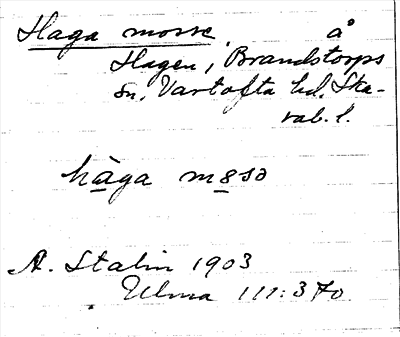 Haga mosse å
Hagen, Brandstorps
sn, Vartofta hd. Ska-
rab. l.
håga m8sə
A. Stalin 1903
Ulma 111:370